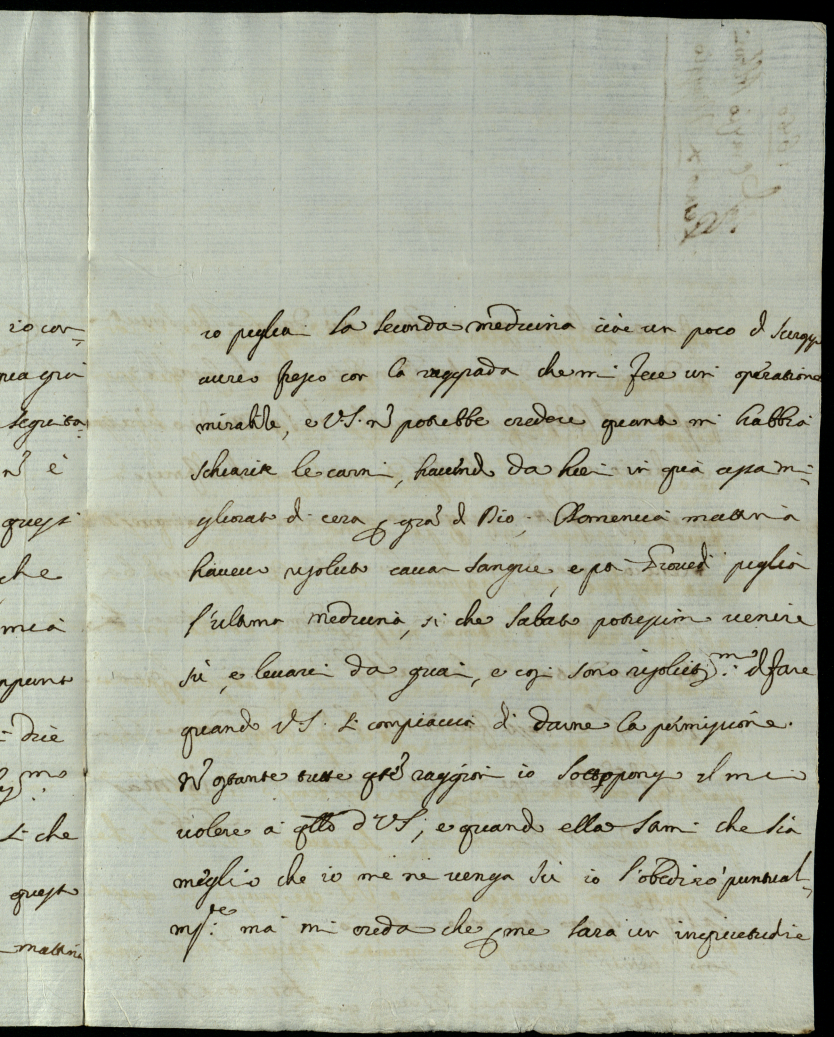 io con=
mea gra
seguita
nō è
questi
che
mia
apunto
drie
mo
si che
questo
mattina
io pigliai la seconda medicina cioè un poco d Sirop
aureo fresco con la che mi fece un operatione
mirabile, e V.S. nō potrebbe credere quanto mi habbia
schiarite le carni, havendo da hieri in quà assai mi=
gliorato di cera p gra d Dio. Domenica mattina
havevo risoluto cavar sangue, e poi Giovedi pigliar
l'ultima medicina, si che Sabato potressimo venire
sù, e levarci da quai, e cosi sono risolutiss.mo d fare
quando V.S. si compiaccia di darne la permissione.
Nō ostante tutte qste raggioni io sottopongo il mio
volere à qllo d VS, e quando ella stimi che sia
meglio che io me ne venga sù io l'obedirò puntual=
m.te mà mi creda che p me sarà un inquietudine